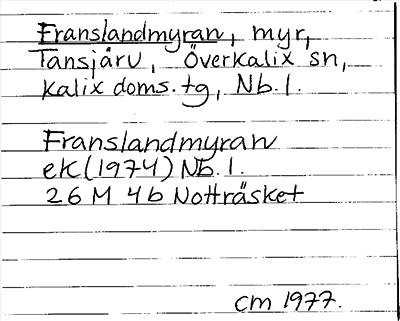 Franslandmyran, myr,
Tansjärv, Överkalix sn,
Kalix doms. tg, Nb. l.
Franslandmyran
ek (1974) Nb. l.
26 M 4b Notträsket
cm 1977.